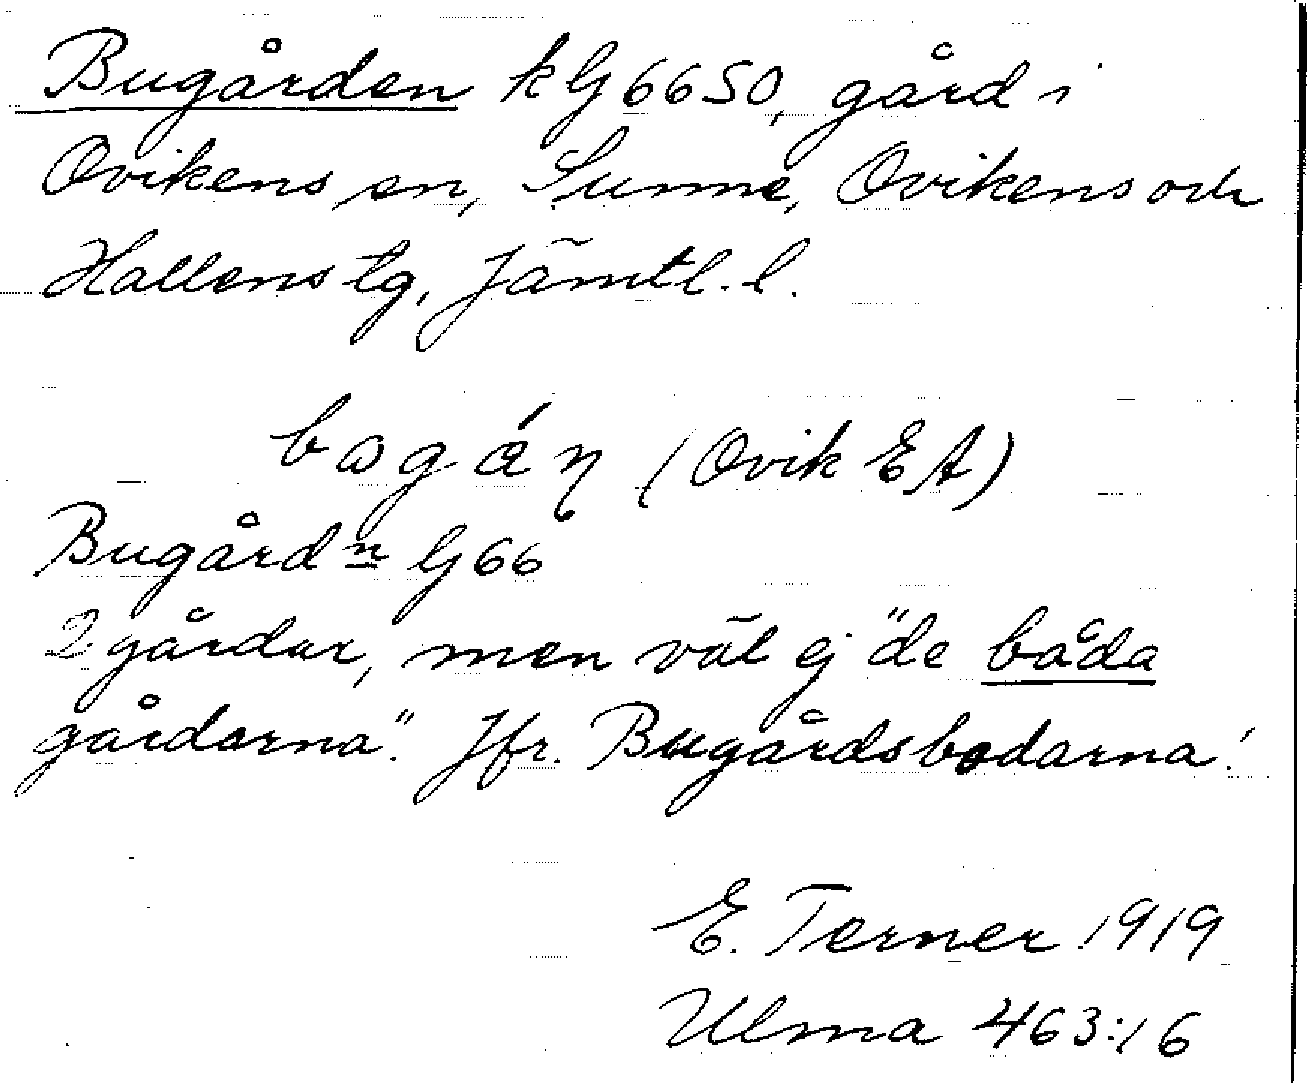 Bugården k G 66 SO, gård i
Ovikens sn, Sunne, Ovikens och
Hallens tg, Jämtl. l.
bogáɳ (Ovik EA)
Bugårdn G 66
2 gårdar, men väl ej "de båda
gårdarna". Jfr. Bugårdsbodarna!
E. Terner 1919
Ulma 463:16